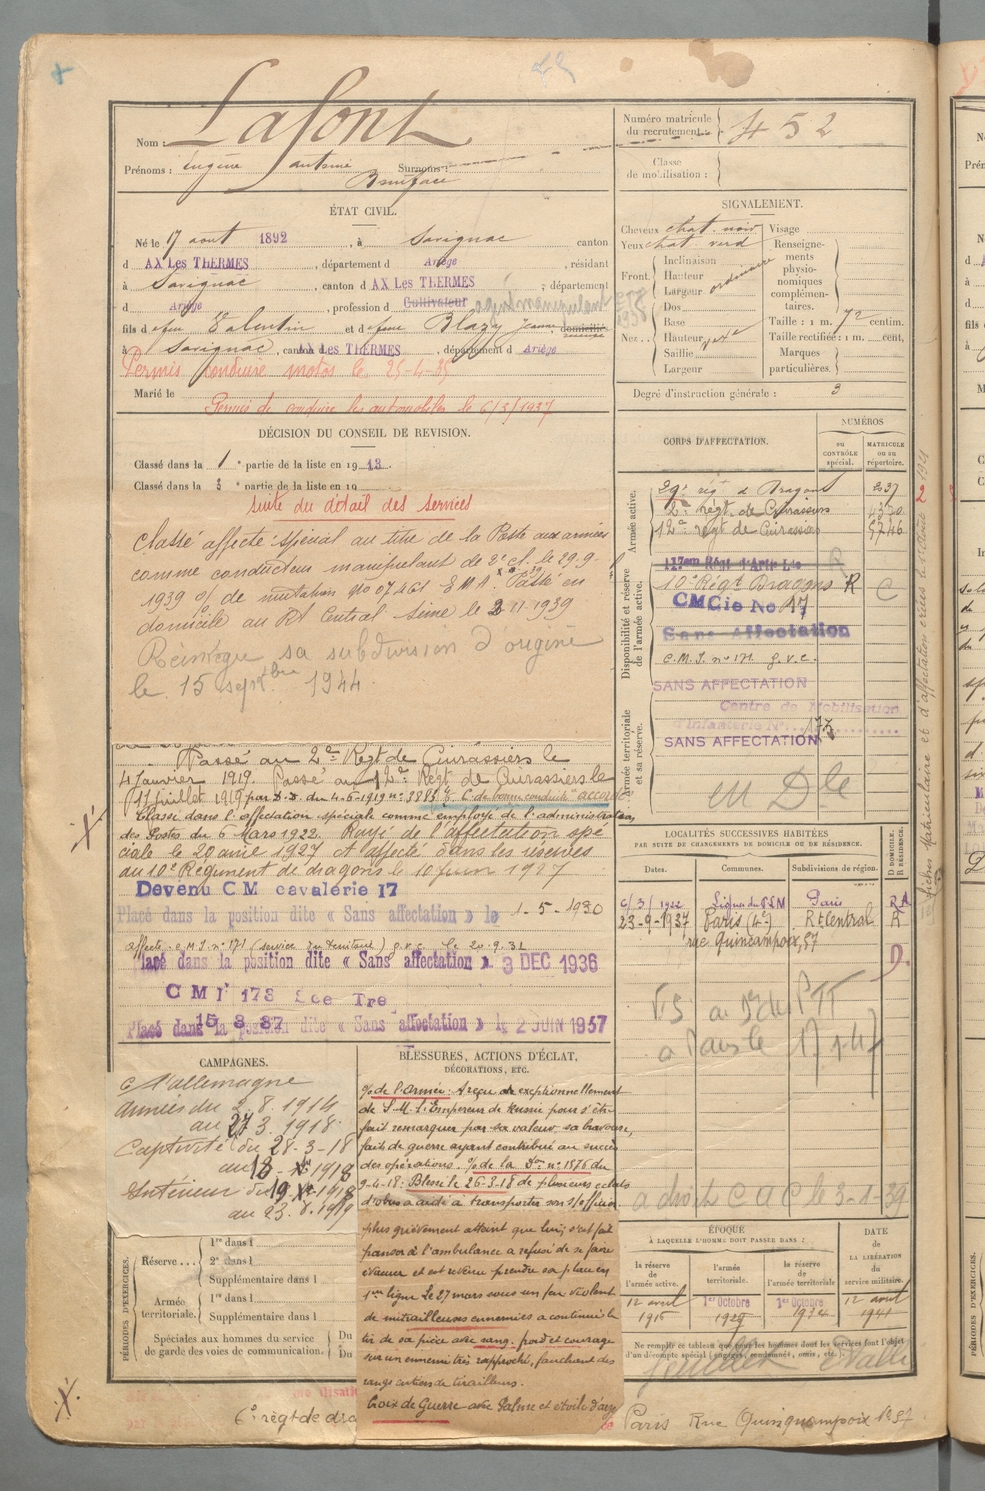 Nom : Lafont
Prénoms : Eugène Antoine Boniface Surnoms :
ÉTAT CIVIL.
Né le 17 aout 1892, à Savignac canton
d AX Les THERMES, département d Ariège, résidant
à Savignac, canton d AX Les THERMES, département
d Ariège, profession d Cultivateur
fils d feu Valentin et d feue Blazy Jeanne domicilié
à Savignac, canton d AX Les THERMES, département d Ariège
Permis conduire motos le 25-4-35
Marié le
Permis de conduire les automobiles le 6/3/1937
DÉCISION DU CONSEIL DE REVISION.
Classé dans la 1e partie de la liste en 1913.
Classé dans la 3e partie de la liste en 19
Suite du détail des services
Classé affecté spécial au titre de la Poste aux armées
comme conducteur manipulant de 2e cl. le 29.9.
1939 o/ de mutation No 07461 E M A. Passé en
domicile au Rt Central Seine le 2-11-1939
Réintègre sa subdivision d'origine
le 15 septbre 1944.
Passé au 2e Régt de Cuirassiers le
4 Janvier 1919. Passé au 12e Régt de Cuirassiers le
11 juillet 1919 par D.D. du 4-6-1919 no 3885 C. de bonne conduite accordé
Classé dans l'affectation spéciale comme employé de l'administration
des Postes du 6 Mars 1922. Rayé de l'affectation spé
ciale le 20 avril 1927 et affecté dans les réserves
du 10e Régiment de dragons le 10 juin 1927
Devenu CM cavalérie 17
Placé dans la position dite « Sans affectation » le 1-5-1930
Affecté C.M.I. no 171 (service du territoire) g.v.c. le 20.9.32
Placé dans la position dite « Sans affectation » le 3 DEC 1936
CMI 173 Sce Tre
15 8 37
Placé dans la position dite « Sans affectation » le 2 JUIN 1937
CAMPAGNES.
C l'allemagne
Années du 2.8.1914
au 27 3.1918.
Captivité du 28-3-18
au 18-Xe 1918
Intérieur du 19 Xe 1918
au 23.8.1919
PÉRIODES D'EXERCICES.
Réserve ...
1re dans l
2e dans l
Supplémentaire dans l
Armée territoriale.
1re dans l
Supplémentaire dans l
Spéciales aux hommes du service
de garde des voies de communication.
Du
Du
6e règt de dra
BLESSURES, ACTIONS D'ÉCLAT,
DÉCORATIONS, ETC.
% de l'Armée : A reçu exceptionnellement
de S.M. l'Empereur de Russie pour s'être
fait remarquer par sa valeur, sa bravoure,
faits de guerre ayant contribué au succès
des opérations. % de la Don no 1876 du
9-4-18 : Blessé le 26-3-18 de plusieurs eclats
d'obus a aidé à transporter son s/officier
plus grièvement atteint que lui, s'est fait
panser à l'ambulance a refusé de se faire
évacuer et est revenu prendre sa place en
1ère ligne. Le 27 mars sous un feu violent
de mitrailleuses ennemies a continué le
tir de sa pièce avec sang-froid et courage
sur un ennemi très rapproché, fauchant des
rangs entiers de tirailleurs.
Croix de Guerre avec Palme et étoile d'arg
Numéro matricule
du recrutement. 452
Classe
de mobilisation :
SIGNALEMENT.
Cheveux chat. noir
Yeux chat. verd
Front. Inclinaison
Hauteur
Largeur ordinaire
Nez.. Dos
Base
Hauteur
Saillie
Largeur
Visage
Renseigne-
ments
physio-
nomiques
complémen-
taires.
Taille : 1 m. 72 centim.
Taille rectifiée : 1 m. cent,
Marques
particulières.
Degré d'instruction générale : 3
CORPS D'AFFECTATION.
NUMÉROS
au CONTRÔLE spécial.
MATRICULE ou au répertoire.
Armée active.
29e régt de Dragons 237
2e régt de Cuirassiers 4370
12e régt de Cuirassiers 5746
Disponibilité et réserve de l'armée active.
117ème Régt d'Artie Lde
10e Régt Dragons R C
CM Cie No 17
Sans Affectation
C.M.I. no 171 g.v.c.
SANS AFFECTATION
Armée territoriale et sa réserve.
Centre de Mobilisation
d'Infanterie No 173
SANS AFFECTATION
en Dle
LOCALITÉS SUCCESSIVES HABITÉES
PAR SUITE DE CHANGEMENTS DE DOMICILE OU DE RÉSIDENCE.
Dates. Communes. Subdivisions de région. D. DOMICILE. R. RÉSIDENCE.
6/3/1922 Lignes du PLM Paris RA
23-9-1937 Paris (4e) Rt Central R
rue Quincampoix, 57
D.
a Paris le
a droit C A C le 3-1-39
ÉPOQUE
À LAQUELLE L'HOMME DOIT PASSER DANS :
la réserve de l'armée active.
l'armée territoriale.
la réserve de l'armée territoriale
DATE de LA LIBÉRATION du service militaire.
12 avril 1916
1er Octobre 1929
1er Octobre 1934
12 avril 1941
Ne remplir ce tableau que pour les hommes dont les services font l'objet
d'un décompte spécial (engagés, condamnés, omis, etc.).
Paris Rue Quinquampoix No 57